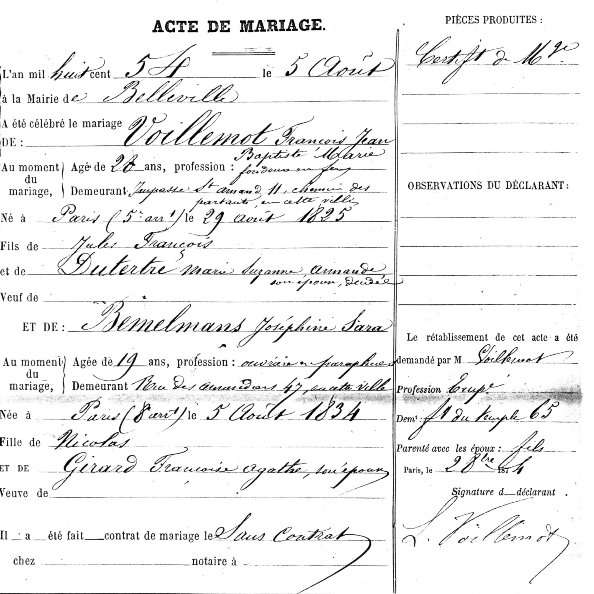 ACTE DE MARIAGE.
L'an mil huit cent 54 le 5 Août
à la Mairie de Belleville
A été célébré le mariage
DE : Voillemot François Jean
Baptiste Marie
Au moment du mariage, Agé de 28 ans, profession : fondeur en fer
Demeurant Impasse St amand 11, chemin des
partants, en cette ville
Né à Paris (5e arrt) le 29 Août 1825
Fils de Jules François
et de Dutertre marie Suzanne, Armande,
son épouse, décédée
Veuf de
ET DE : Bemelmans Joséphine Sara
Au moment du mariage, Agée de 19 ans, profession : ouvrière en parapluies
Demeurant rue des amandiers 47, en cette ville
Née à Paris (8 arrt) le 5 Août 1834
Fille de Nicolas
ET DE Girard Françoise Agathe, son épouse
Veuve de
Il a été fait contrat de mariage le Sans Contrat
chez notaire à
PIÈCES PRODUITES :
Certift de Mge
OBSERVATIONS DU DÉCLARANT :
Le rétablissement de cet acte a été
demandé par M Voillemot
Profession
Demt fg du temple 65
Parenté avec les époux : fils
Paris, le 2 8bre 187
Signature d déclarant .
L. Voillemot